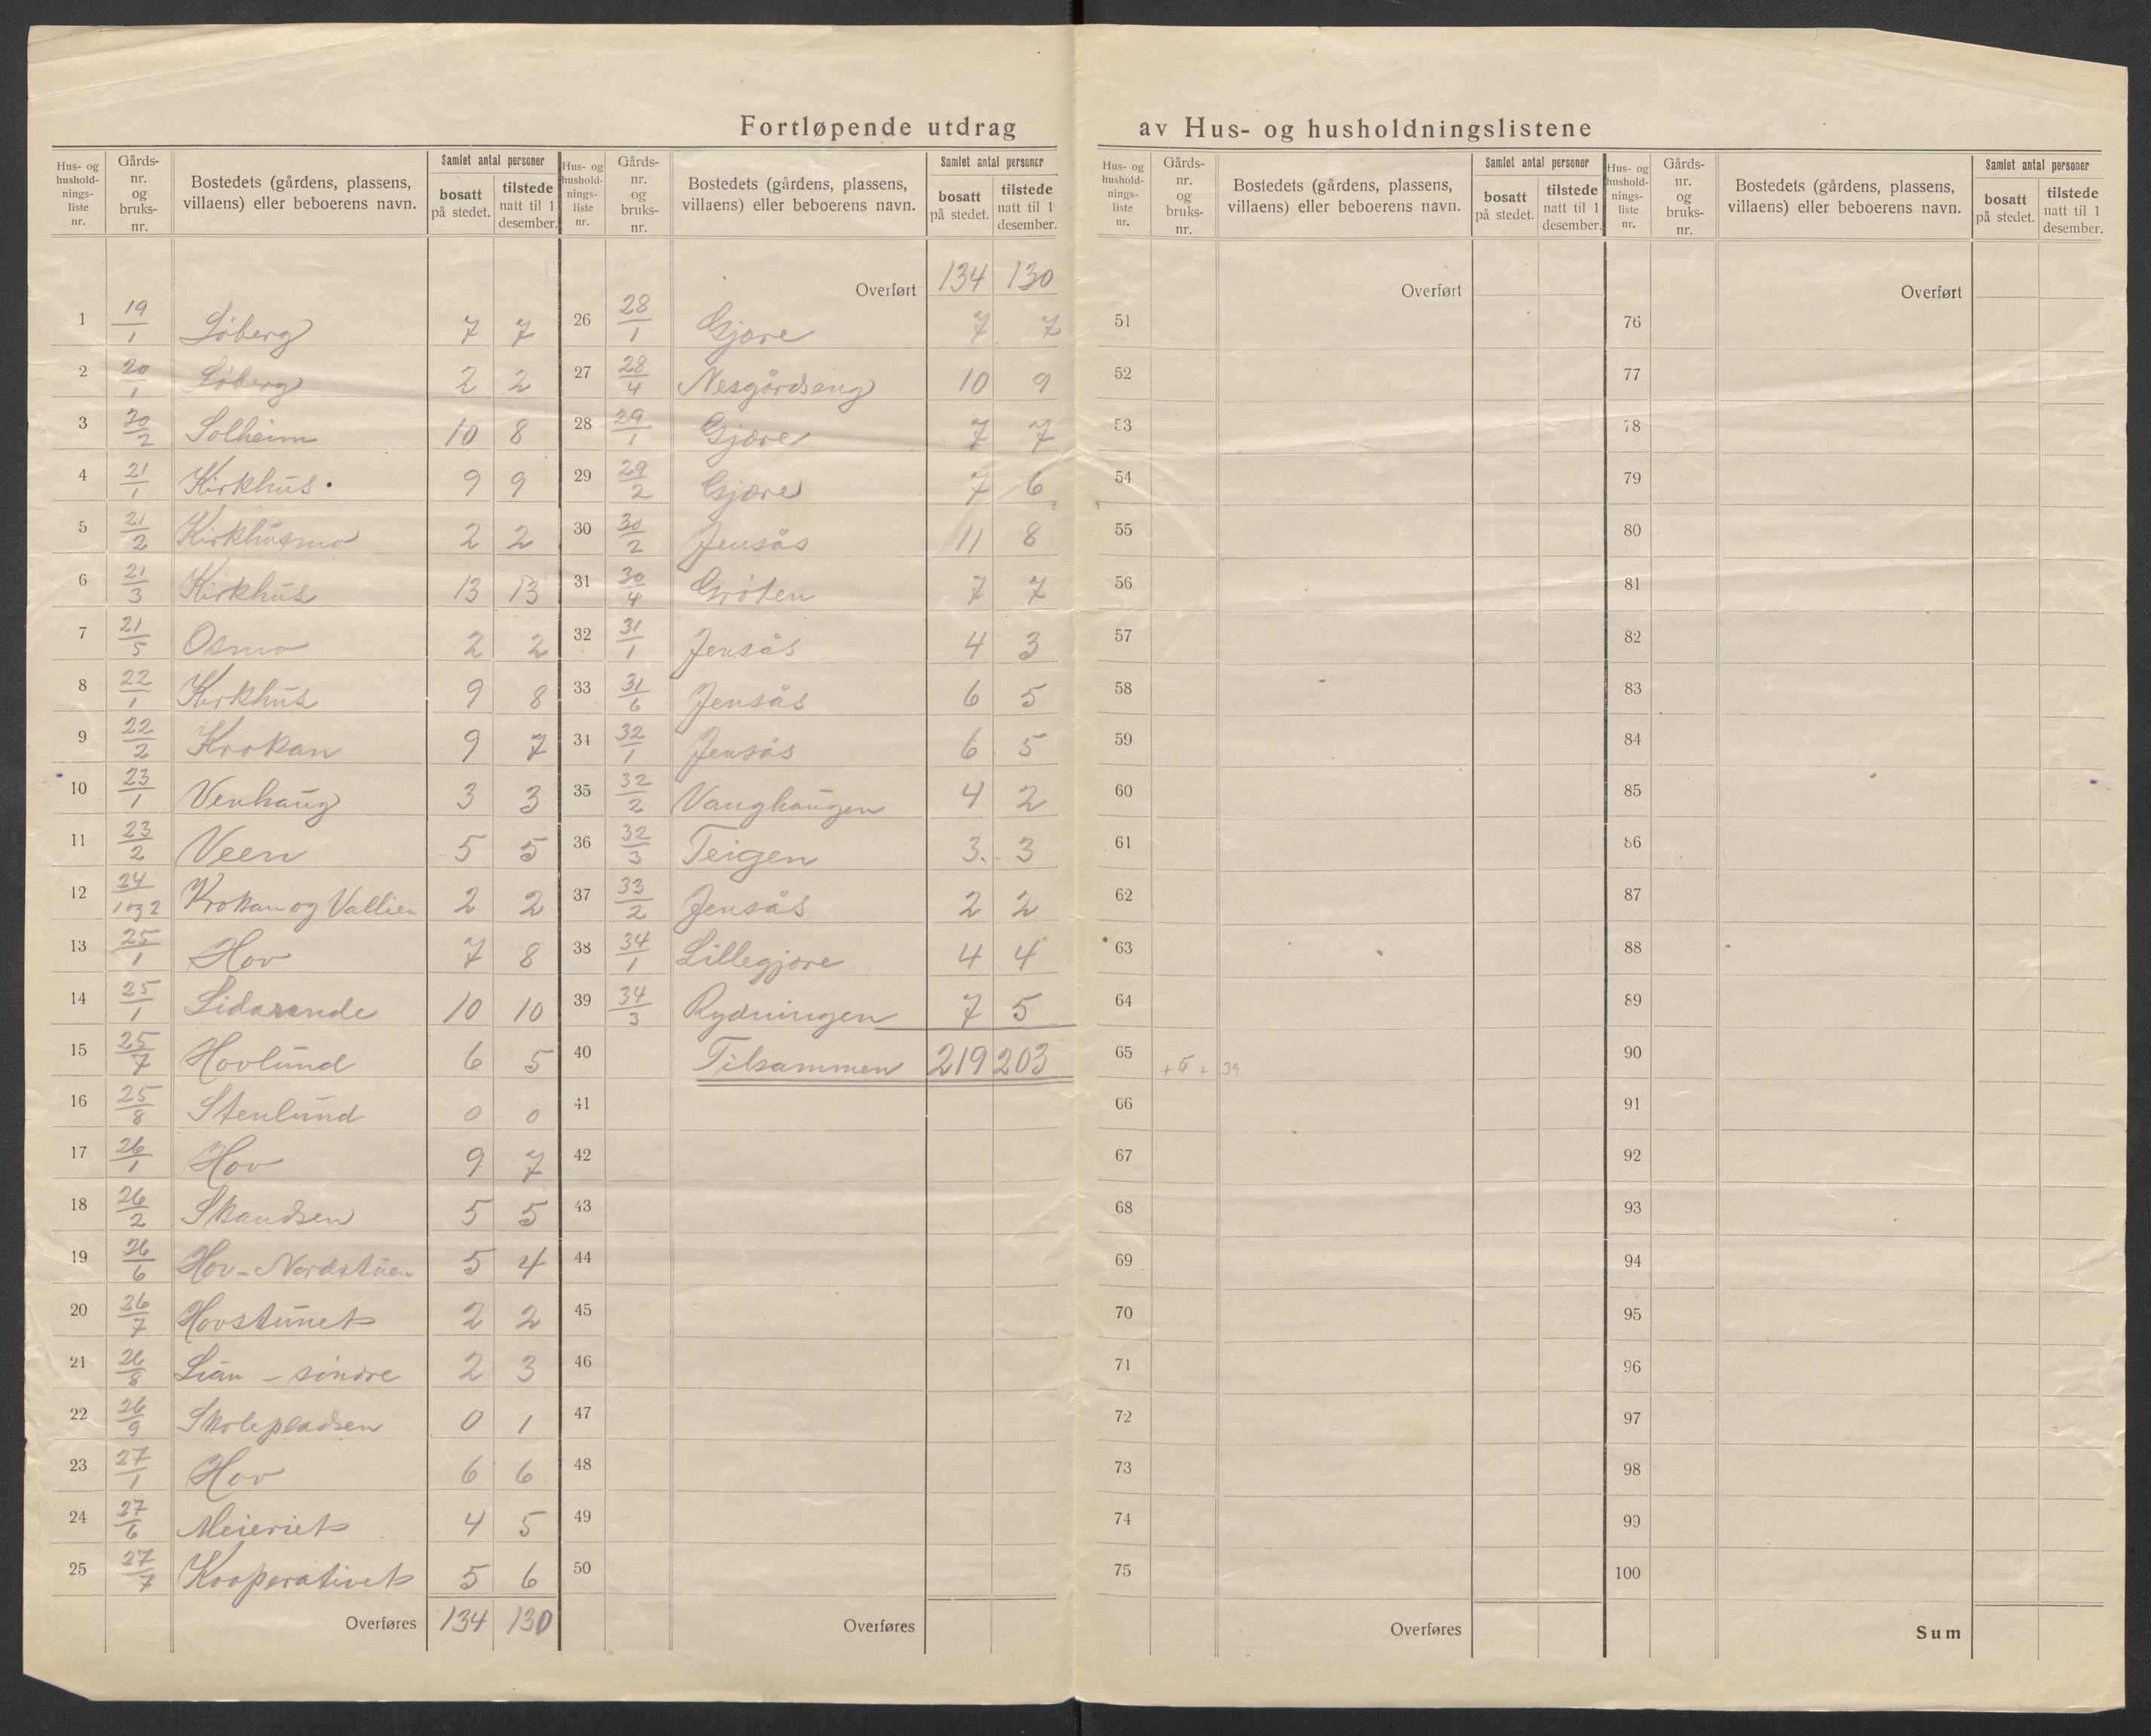 Fortløpende utdrag av Hus- og husholdningslistene
Hus- og husholdnings-liste nr. | Gårds-nr. og bruks-nr. | Bostedets (gårdens, plassens, villaens) eller beboerens navn. | Samlet antal personer | bosatt på stedet. | tilstede natt til 1 desember.
Hus- og husholdnings-liste nr. | Gårds-nr. og bruks-nr. | Bostedets (gårdens, plassens, villaens) eller beboerens navn. | Samlet antal personer | bosatt på stedet. | tilstede natt til 1 desember.
Hus- og husholdnings-liste nr. | Gårds-nr. og bruks-nr. | Bostedets (gårdens, plassens, villaens) eller beboerens navn. | Samlet antal personer | bosatt på stedet. | tilstede natt til 1 desember.
Hus- og husholdnings-liste nr. | Gårds-nr. og bruks-nr. | Bostedets (gårdens, plassens, villaens) eller beboerens navn. | Samlet antal personer | bosatt på stedet. | tilstede natt til 1 desember.
1 19/1 Løberg 7 7
2 20/1 Løberg 2 2
3 20/2 Solheim 10 8
4 21/1 Kirkhus. 9 9
5 21/2 Kirkhusmo 2 2
6 21/3 Kirkhus 13 13
7 21/5 Osmo 2 2
8 22/1 Kirkhus 9 8
9 22/2 Krokan 9 7
10 23/1 Venhaug 3 3
11 23/2 Veen 5 5
12 24/1 og 2 Krokan og Vallien 2 2
13 25/1 Hov 7 8
14 25/1 Lidarende 10 10
15 25/7 Hovlund 6 5
16 25/8 Stenlund 0 0
17 26/1 Hov 9 7
18 26/2 Skandsen 5 5
19 26/6 Hov-Nordstuen 5 4
20 26/7 Hovstunet 2 2
21 26/8 Lian - søndre 2 3
22 26/9 Skolepladsen 0 1
23 27/1 Hov 6 6
24 27/6 Meieriet 4 5
25 27/7 Kooperativet 5 6
Overføres 134 130
Overført 134 130
26 28/1 Gjøre 7 7
27 28/4 Nesgårdseng 10 9
28 29/1 Gjøre 7 7
29 29/2 Gjøre 7 6
30 30/2 Jensås 11 8
31 30/4 Grøten 7 7
32 31/1 Jensås 4 3
33 31/6 Jensås 6 5
34 32/1 Jensås 6 5
35 32/2 Vanghaugen 4 2
36 32/3 Teigen 3 3
37 33/2 Jensås 2 2
38 34/1 Lillegjøre 4 4
39 34/3 Rydningen 7 5
40 Tilsammen 219 203
41
42
43
44
45
46
47
48
49
50
Overføres
Overført
51
52
53
54
55
56
57
58
59
60
61
62
63
64
65 39
66
67
68
69
70
71
72
73
74
75
Overføres
Overført
76
77
78
79
80
81
82
83
84
85
86
87
88
89
90
91
92
93
94
95
96
97
98
99
100
Sum